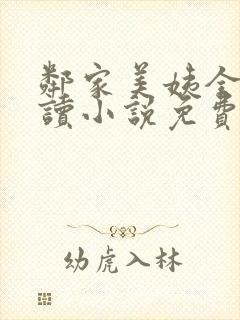 鄰家美姨全
讀小說免費
幼虎入林